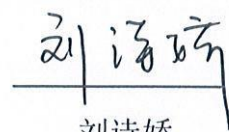 刘诗娇
刘诗娇